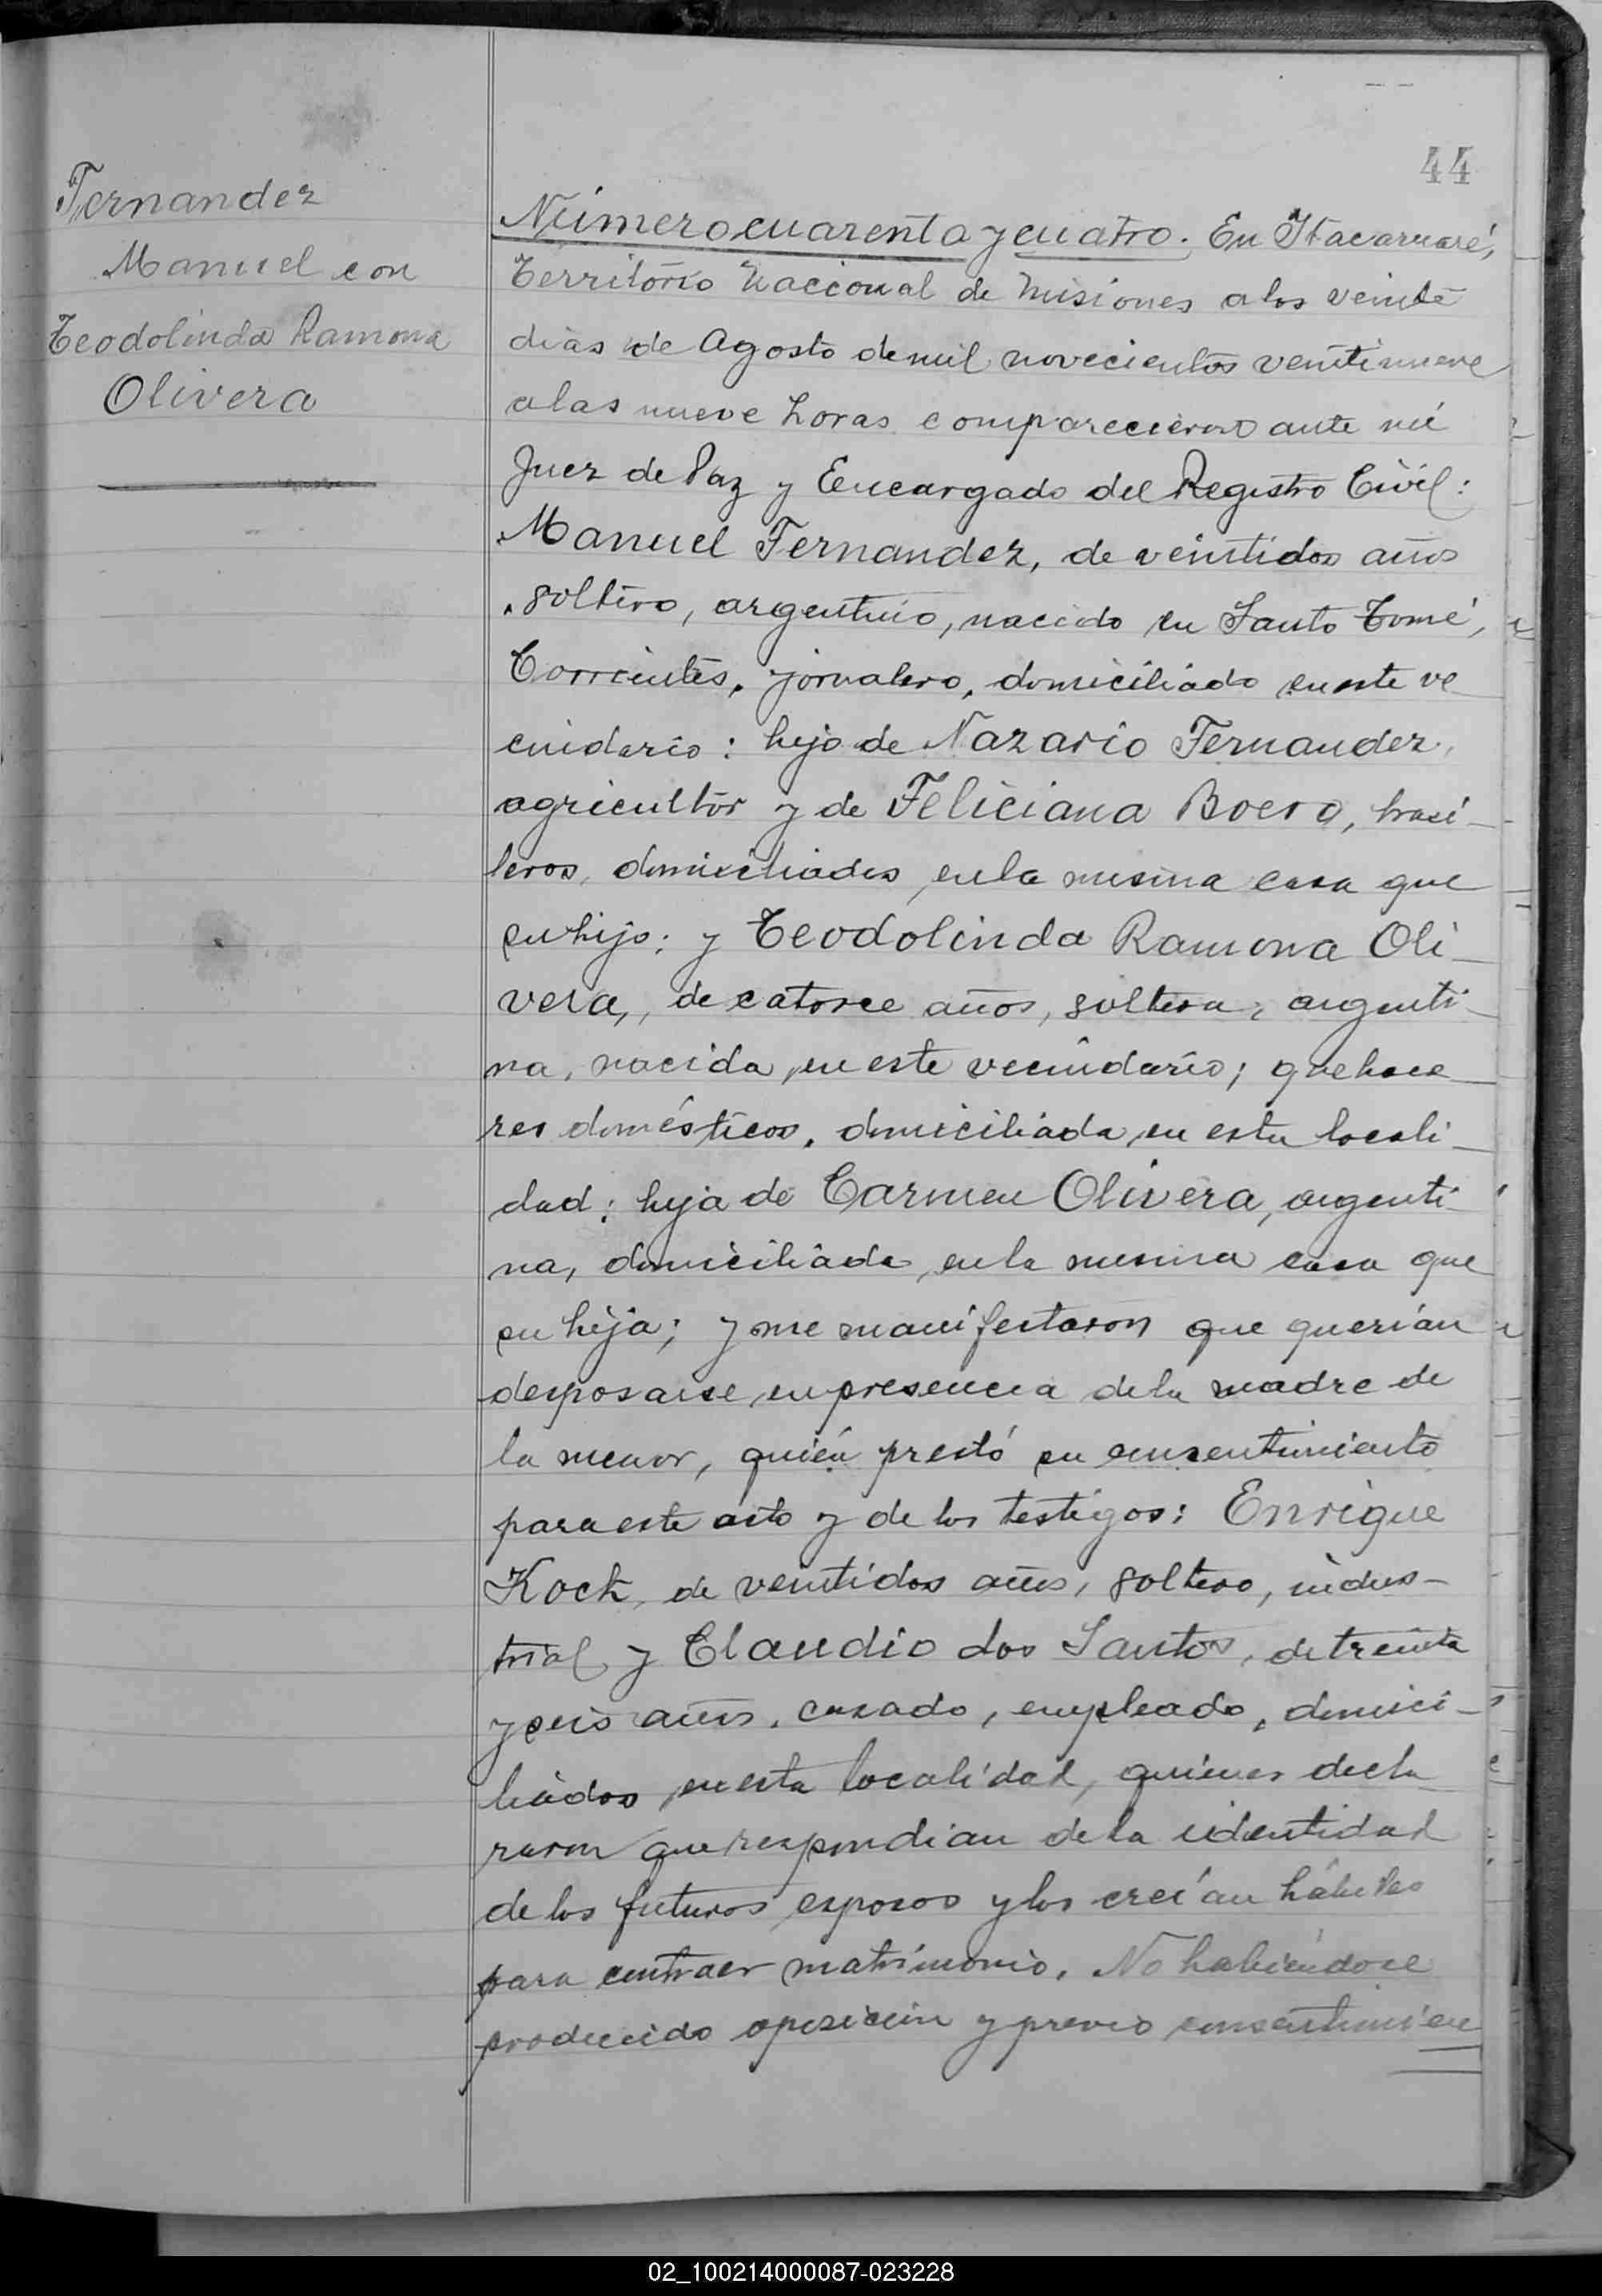 44
Fernandez
Manuel con
Teodolinda Ramona
Olivera
Número cuarenta y cuatro. En Itacaruaré,
Territorio Nacional de Misiones a los veinte
dias de Agosto de mil novecientos veintinueve
a las nueve horas comparecieron ante mí
Juez de Paz y Encargado del Registro Civil:
Manuel Fernandez, de veintidos años
soltero, argentino, nacido en Santo Tomé,
Corrientes, jornalero, domiciliado en este ve
cindario: hijo de Nazario Fernandez,
agricultor y de Feliciana Boero, brasi-
leros, domiciliados en la misma casa que
su hijo; y Teodolinda Ramona Oli-
vera, de catorce años, soltera, argenti-
na, nacida en este vecindario; quehace
res domésticos, domiciliada en esta locali-
dad: hija de Carmen Olivera, argenti-
na, domiciliada en la misma casa que
su hija; y me manifestaron que querían
desposarse en presencia de la madre de
la menor, quién prestó su consentimiento
para este acto y de los testigos: Enrique
Koch, de veintidos años, soltero, indus-
trial y Claudio dos Santos, de treinta
y seis años, casado, empleado, domici-
liados en esta localidad, quienes decla
raron que respondian de la identidad
de los futuros esposos y los creían hábiles
para contraer matrimonio. No habiéndose
producido oposición y previo consentimien
02_100214000087-023228